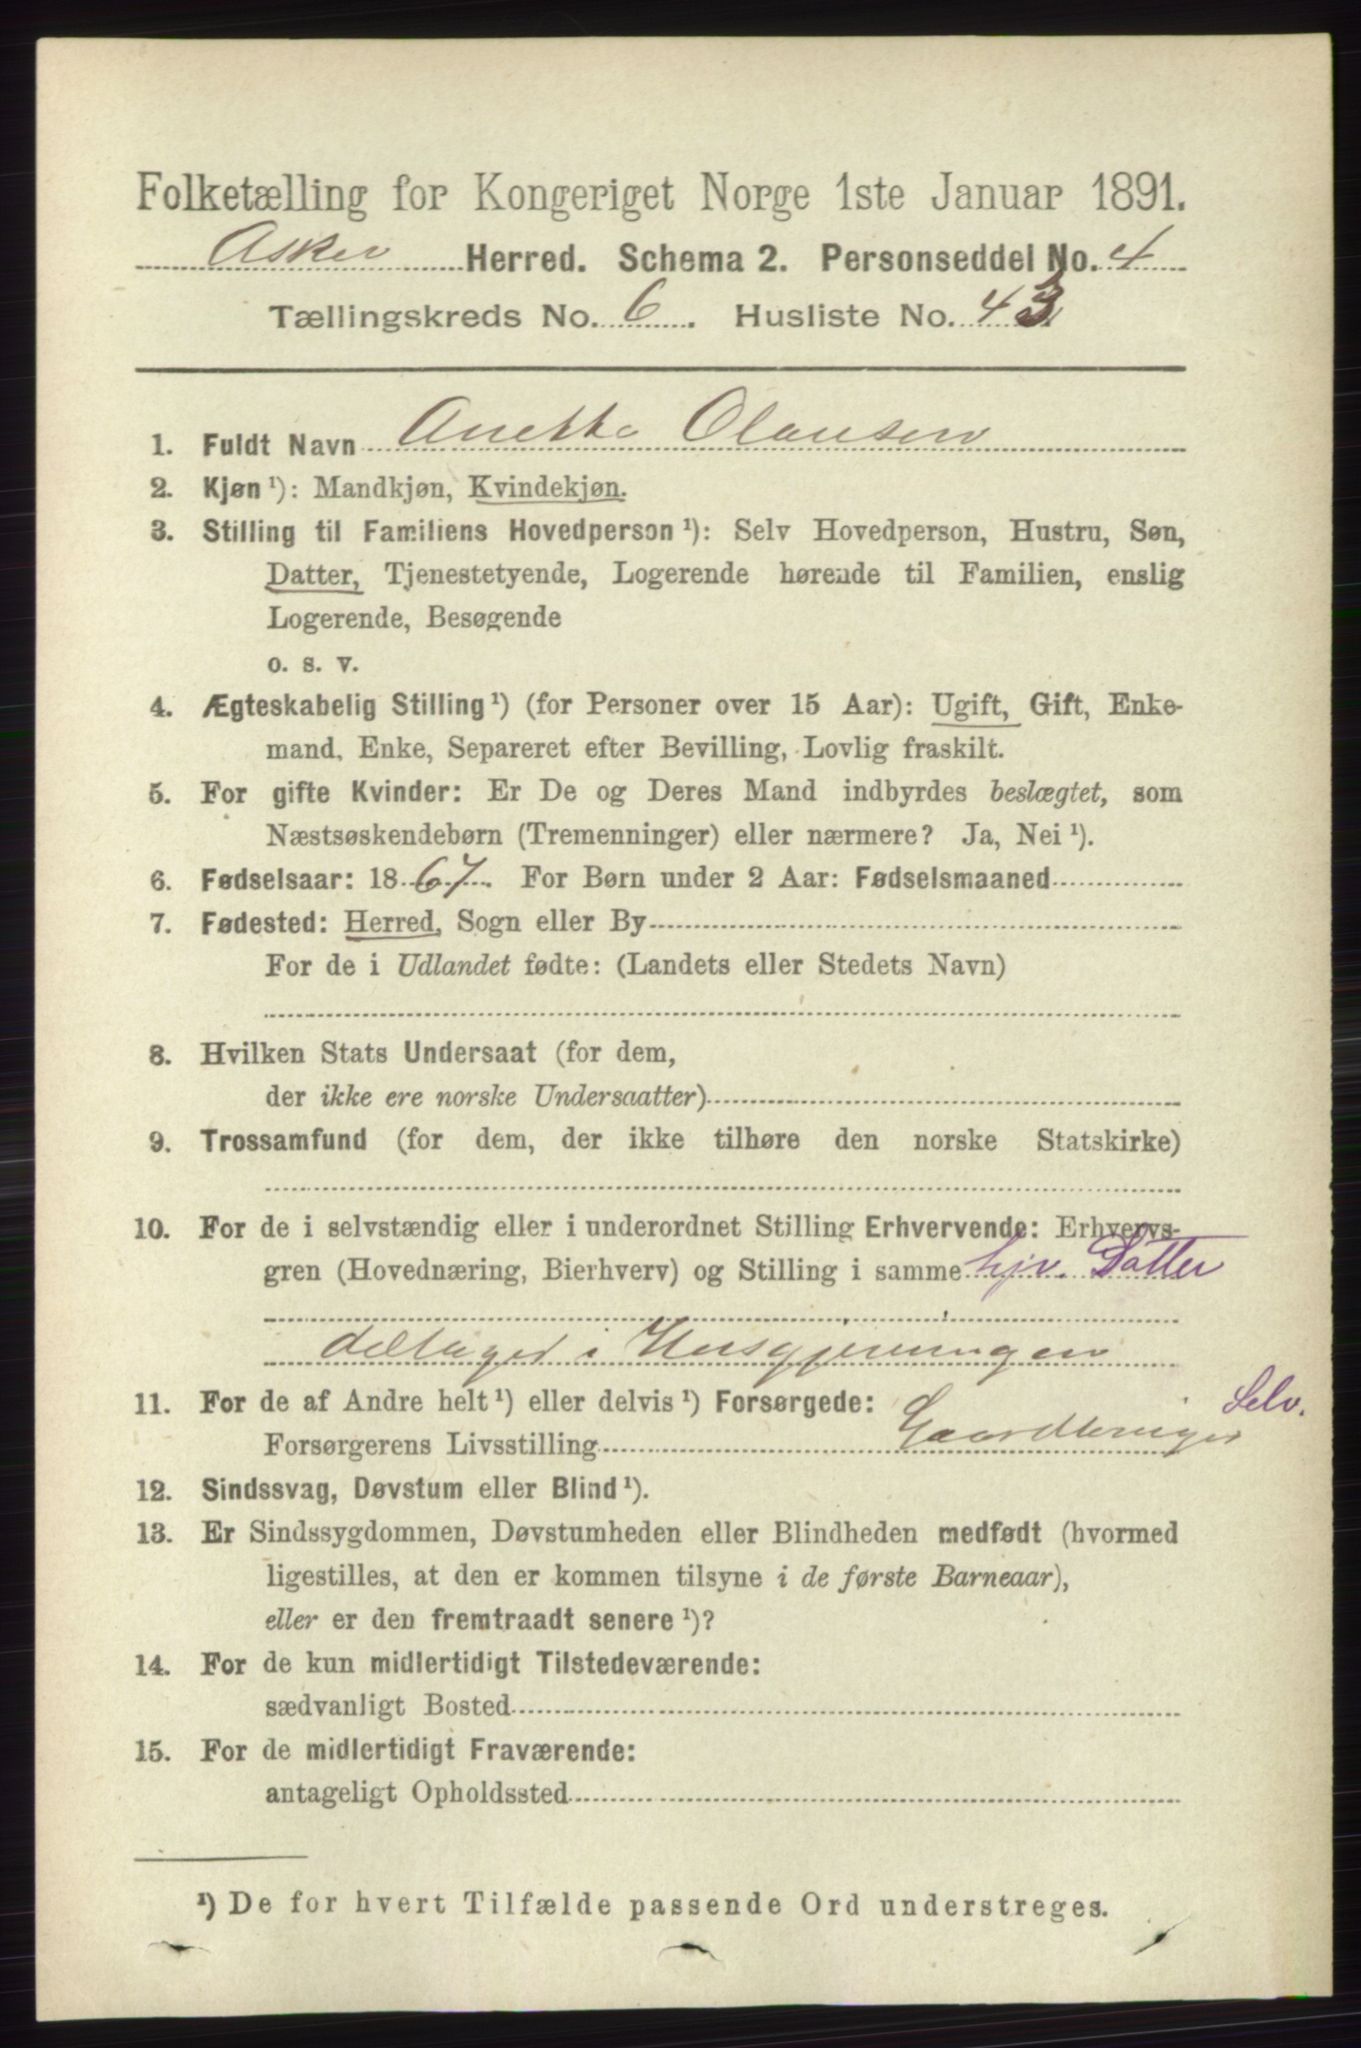 Folketælling for Kongeriget Norge 1ste Januar 1891.
Asker Herred. Schema 2. Personseddel No. 4
Tællingskreds No. 6. Husliste No. 43
1. Fuldt Navn Anette Olausen
2. Kjøn ¹): Mandkjøn, Kvindekjøn.
3. Stilling til Familiens Hovedperson ¹): Selv Hovedperson, Hustru, Søn,
Datter, Tjenestetyende, Logerende hørende til Familien, enslig
Logerende, Besøgende
o. s. v.
4. Ægteskabelig Stilling ¹) (for Personer over 15 Aar): Ugift, Gift, Enke-
mand, Enke, Separeret efter Bevilling, Lovlig fraskilt.
5. For gifte Kvinder: Er De og Deres Mand indbyrdes beslægtet, som
Næstsøskendebørn (Tremenninger) eller nærmere? Ja, Nei ¹).
6. Fødselsaar: 1867. For Børn under 2 Aar: Fødselsmaaned
7. Fødested: Herred, Sogn eller By
For de i Udlandet fødte: (Landets eller Stedets Navn)
8. Hvilken Stats Undersaat (for dem,
der ikke ere norske Undersaatter)
9. Trossamfund (for dem, der ikke tilhøre den norske Statskirke)
10. For de i selvstændig eller i underordnet Stilling Erhvervende: Erhvervs-
gren (Hovednæring, Bierhverv) og Stilling i samme hjv. Datter
deltager i Husgjerningen
11. For de af Andre helt ¹) eller delvis ¹) Forsørgede: Selv.
Forsørgerens Livsstilling Gaardbruger
12. Sindssvag, Døvstum eller Blind ¹).
13. Er Sindssygdommen, Døvstumheden eller Blindheden medfødt (hvormed
ligestilles, at den er kommen tilsyne i de første Barneaar),
eller er den fremtraadt senere ¹)?
14. For de kun midlertidigt Tilstedeværende:
sædvanligt Bosted
15. For de midlertidigt Fraværende:
antageligt Opholdssted
¹) De for hvert Tilfælde passende Ord understreges.